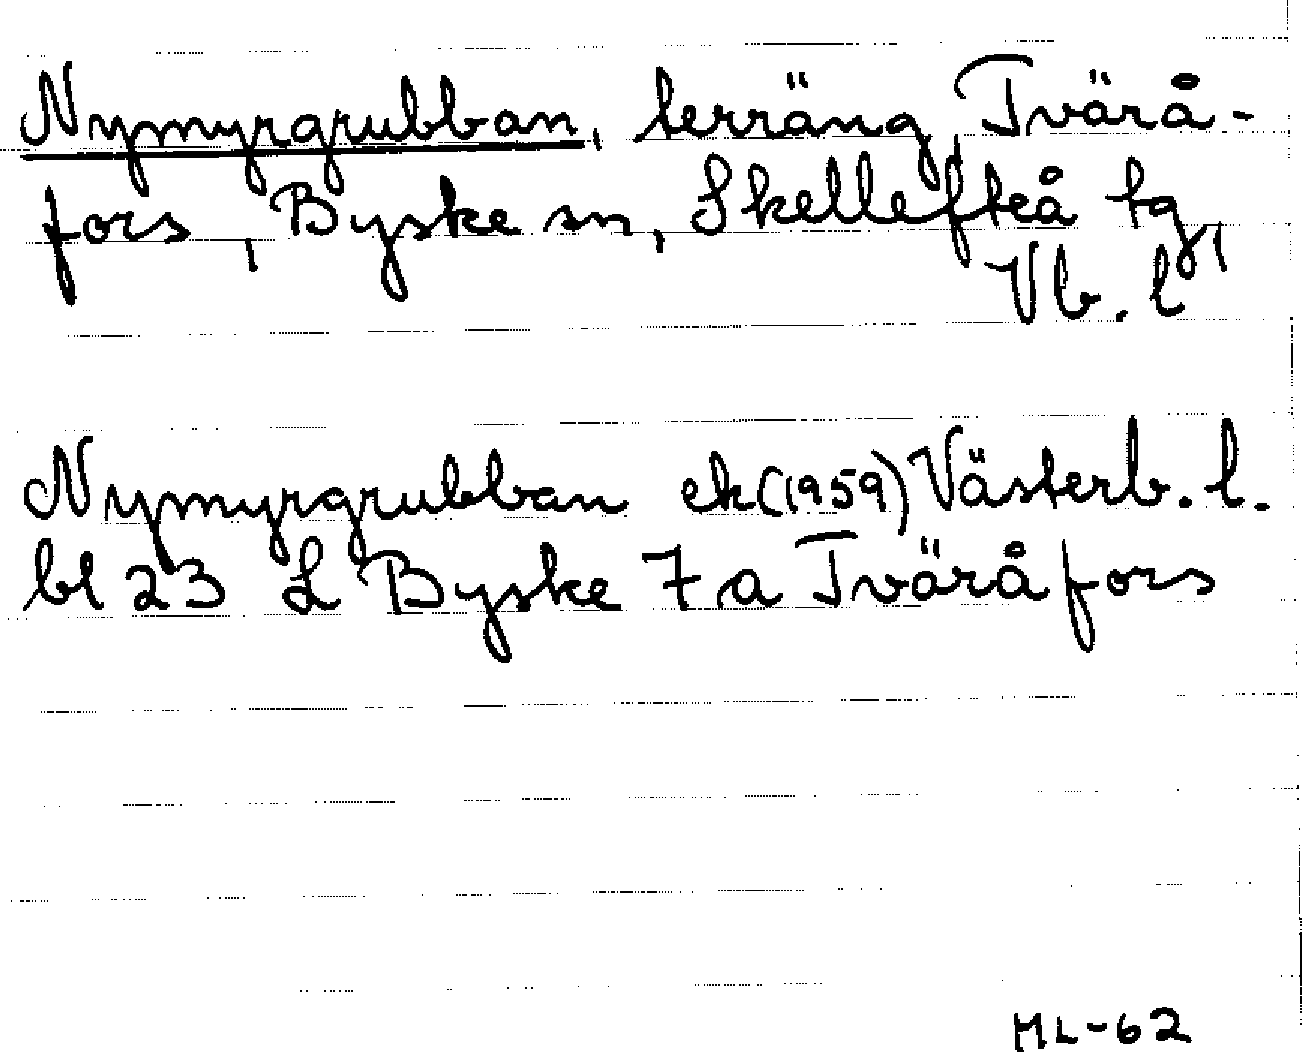 Nymyrgrubban, terräng, Tvärå-
fors, Byske sn, Skellefteå tg,
Vb. l
Nymyrgrubban ek (1959) Västerb. l.
bl 23 L Byske 7 a Tväråfors
ML-62